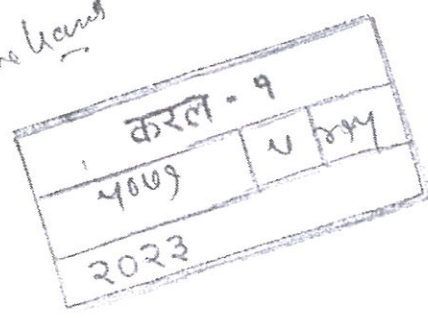 करल - १
५०७१ ५
२०२३